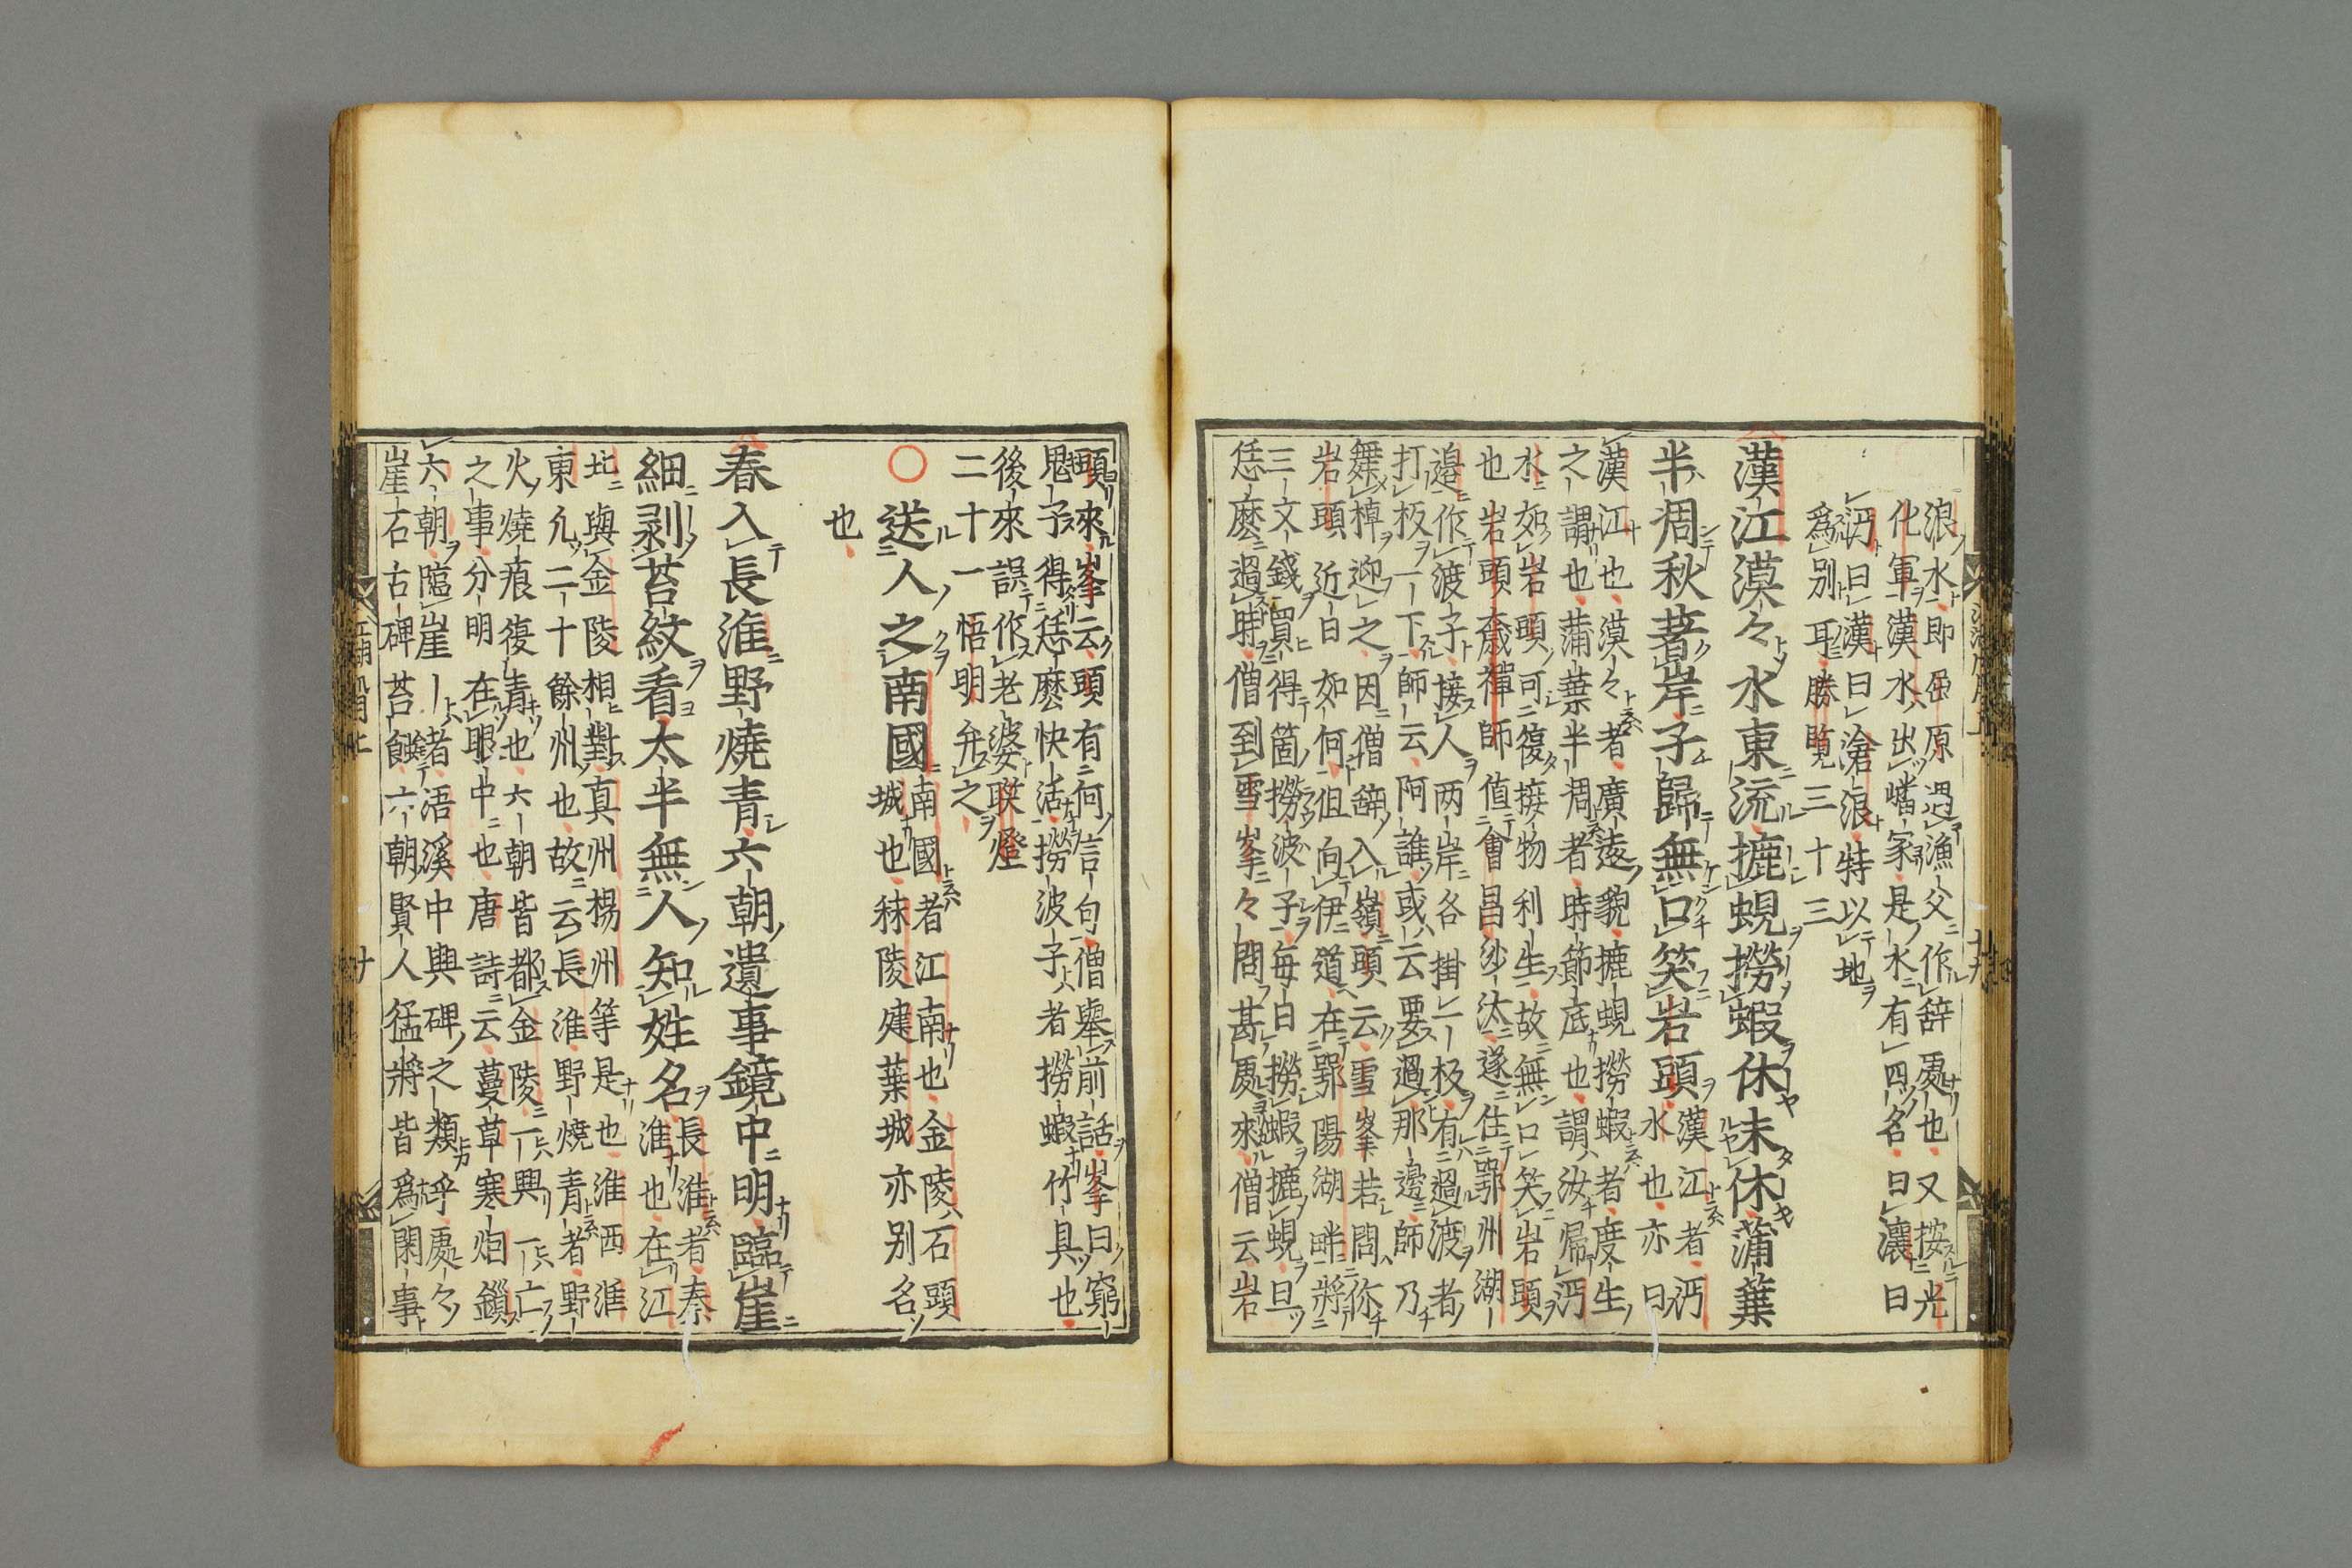 浪水即屈原過漁父作辞處也又按光
化軍漢水出嶓冢是水有四名曰瀁曰
沔曰漢曰滄浪特以地
爲別耳勝覧三十三
漢江漠々水東流摝蜆撈蝦休未休蒲葉
半凋秋著岸子歸無口笑岩頭
漢江者沔
水也亦曰
漢江也漠々者廣遠貌摝蜆撈蝦者度生
之謂也蒲葉半凋者時節底也謂汝帰沔
水如岩頭可復接物利生故無口笑岩頭
也岩頭奯禪師值會昌沙汰遂住鄂州湖
邉作渡子接人两岸各掛一板有過渡者
打板一下師云阿誰或云要過那邊師乃
舞棹迎之因僧辞入嶺頭云雪峯若問你
岩頭近日如何但向伊道在鄂陽湖畔將
三文錢買得箇撈波子毎日撈蝦摝蜆且
恁麽過時僧到雪峯々問甚處來僧云岩
頭來峯云頭有何言句僧舉前話峯曰窮
鬼子得恁麽快活撈波子者撈蝦竹具也
後來誤作老婆联燈
二十一悟明弁之
○送人之南國
南國者江南也金陵石頭
城也秣陵建葉城亦別名
也
春入長淮野燒青六朝遺事鏡中明臨崖
細剥苔紋看太半無人知姓名
長淮者秦
淮也在江
北與金陵相對真州楊州等是也淮西淮
東凢二十餘州也故云長淮野燒青者野
火燒痕復青也六朝皆都金陵一興一亡
之事分明在眼中也唐詩云蔓草寒烟鎖
六朝臨崖者浯溪中興碑之類乎處々
崖石古碑苔蝕六朝賢人猛將皆爲閑事